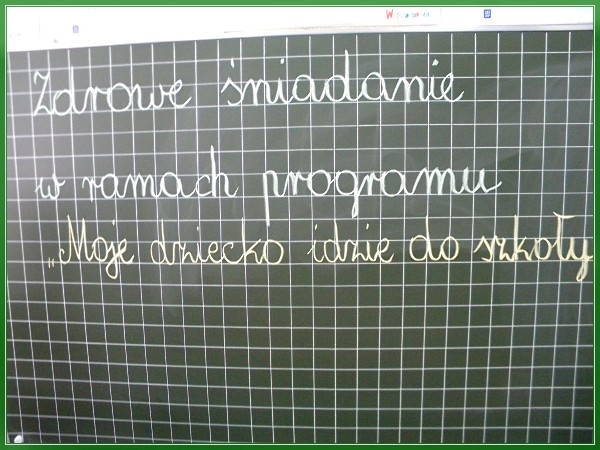 Zdrowe śniadanie
w ramach programu
„Moje dziecko idzie do szkoły